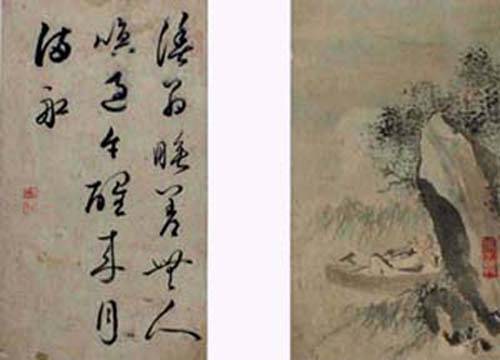 漁翁睡着無人
喚過午醒来月
滿船